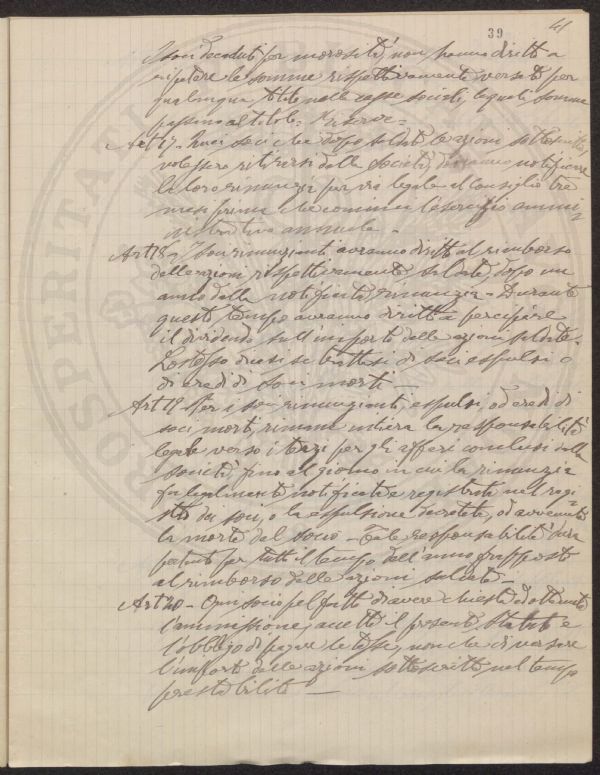 39
41
I soci decaduti per morosità, non hanno diritto a
ripetere le somme rispettivamente versate per
qualunque titolo nelle casse sociali, le quali somme
passano al titolo = Riserve =
Art 17 - Quei soci che dopo saldate le azioni sottoscritte
volessero ritirarsi dalla Società, dovranno notificare
la loro rinunzia per via legale al Consiglio tre
mesi prima che cominci l'esercizio ammi=
nistrativo annuale -
Art 18 - I soci rinunzianti avranno diritto al rimborso
delle azioni rispettivamente saldate, dopo un
anno dalla notificata rinunzia - Durante
questo tempo avranno diritto a percepire
il dividendo sull'importo delle azioni saldate.
Lo stesso dicasi se trattasi di soci espulsi o
di eredi di soci morti -
Art 19 - Per i soci rinunzianti, espulsi, od eredi di
soci morti, rimane intiera la responsabilità
legale verso i terzi per gli affari conclusi dalla
società, fino al giorno in cui la rinunzia
fu legalmente notificata e registrata nel regi=
stro dei soci, o la espulsione decretata, od avvenuta
la morte del socio - Tale responsabilità dura
pertanto per tutto il tempo dell'anno frapposto
al rimborso delle azioni saldate -
Art 20 - Ogni socio pel fatto di avere chiesta ed ottenuta
l'ammissione, accetta il presente Statuto e
l'obbligo di pagare le tasse, nonchè di versare
l'importo delle azioni sottoscritte nel tempo
prestabilito -
PROSPERITATI